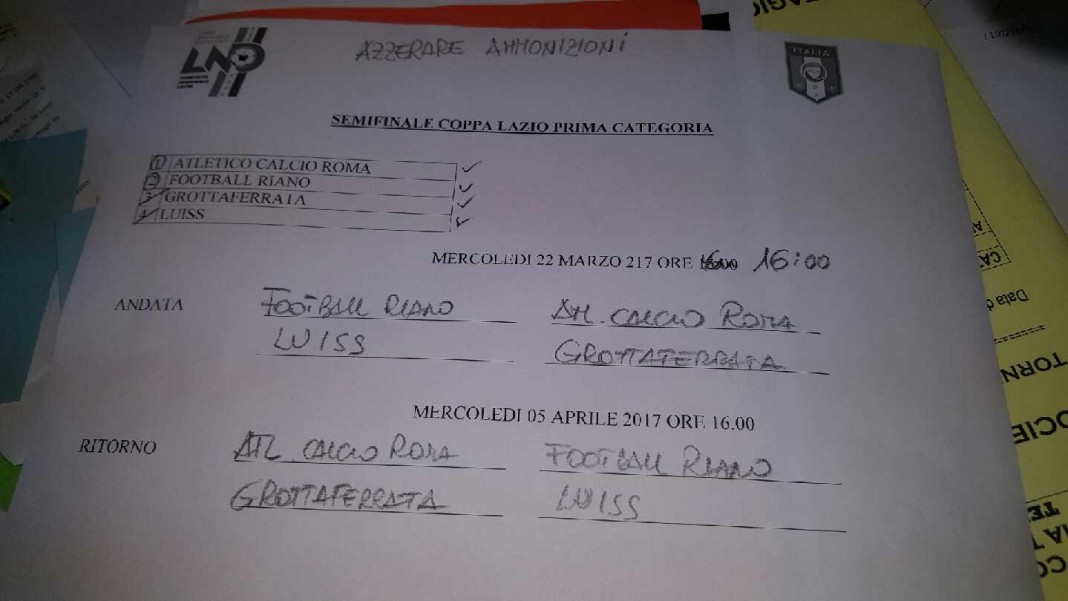 AZZERARE AMMONIZIONI
LND
ITALIA
SEMIFINALE COPPA LAZIO PRIMA CATEGORIA
1 ATLETICO CALCIO ROMA
2 FOOTBALL RIANO
3 GROTTAFERRATA
4 LUISS
MERCOLEDI 22 MARZO 217 ORE 16.00 16:00
ANDATA FOOTBALL RIANO ATL. CALCIO ROMA
LUISS GROTTAFERRATA
MERCOLEDI 05 APRILE 2017 ORE 16.00
RITORNO ATL CALCIO ROMA FOOTBALL RIANO
GROTTAFERRATA LUISS
Data d
TORN
OCIE